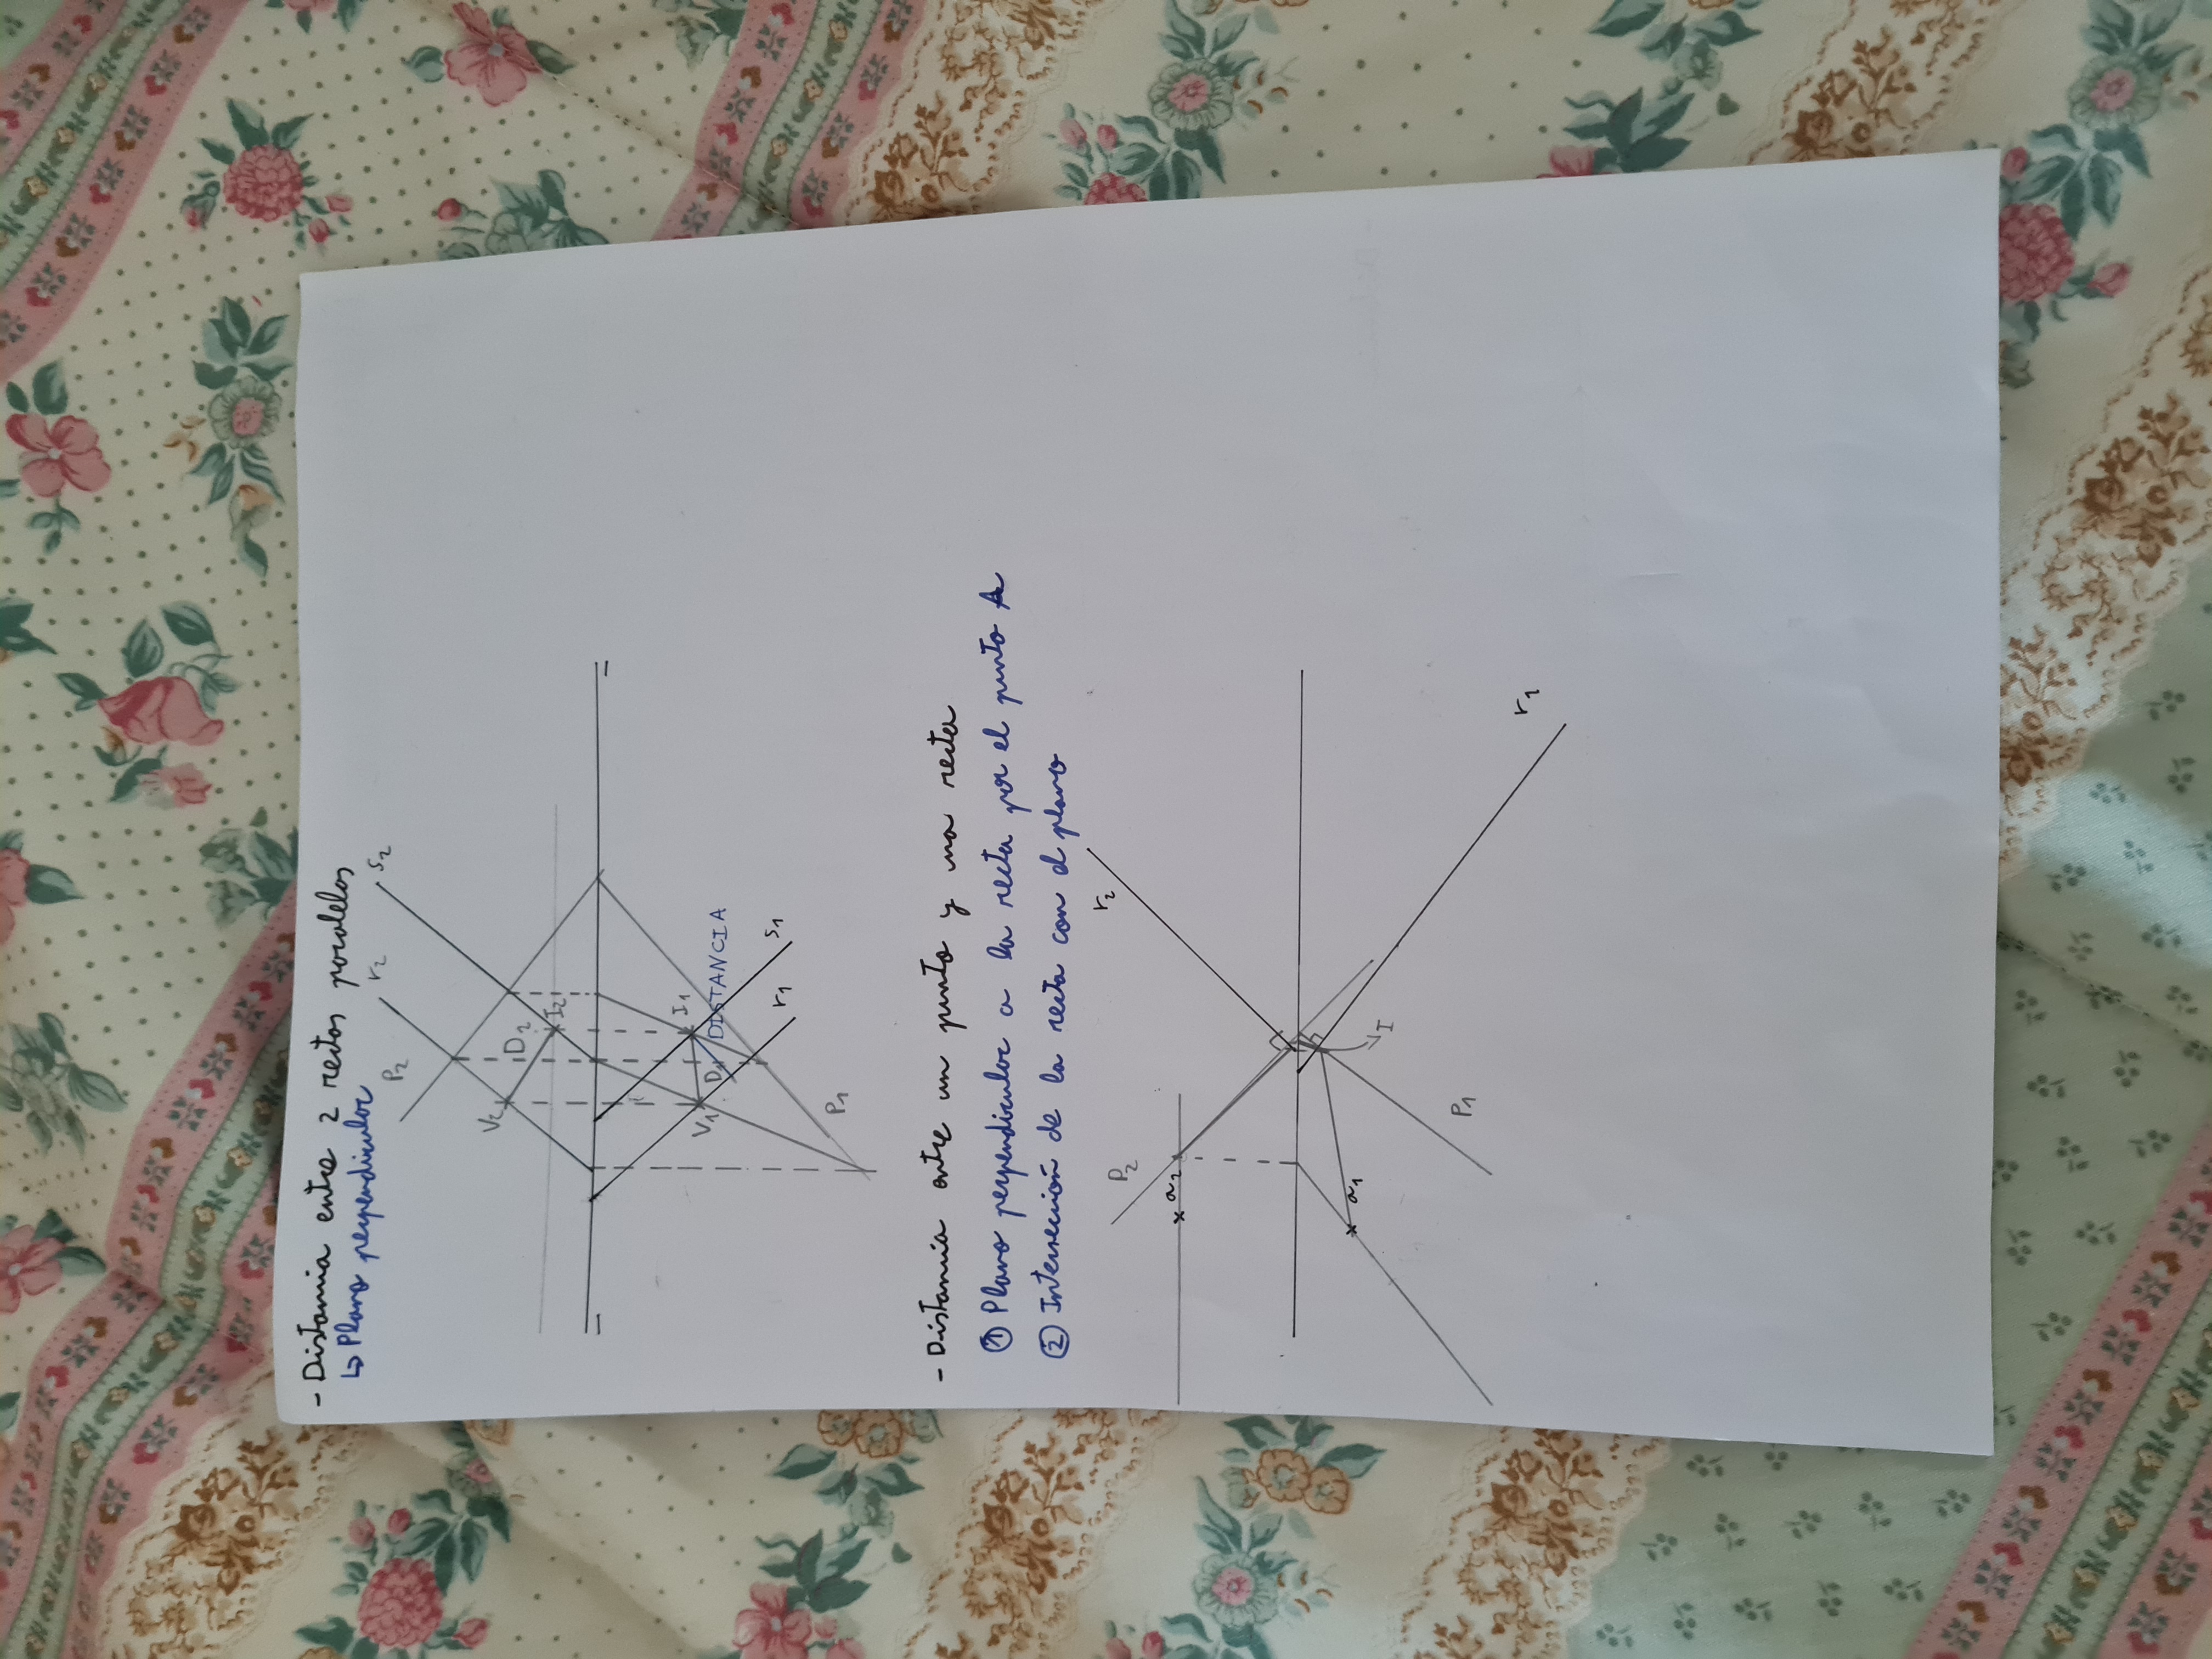 - Distancia entre 2 rectas paralelas
↳ Plano perpendicular
P₂ r₂ s₂
V₂ D₂
I₂
V₁ D₁ I₁
DISTANCIA
r₁ s₁
P₁
- Distancia entre un punto y una recta
① Plano perpendicular a la recta por el punto A
② Intersección de la recta con el plano
P₂ r₂
a₂
a₁
I
P₁
r₁